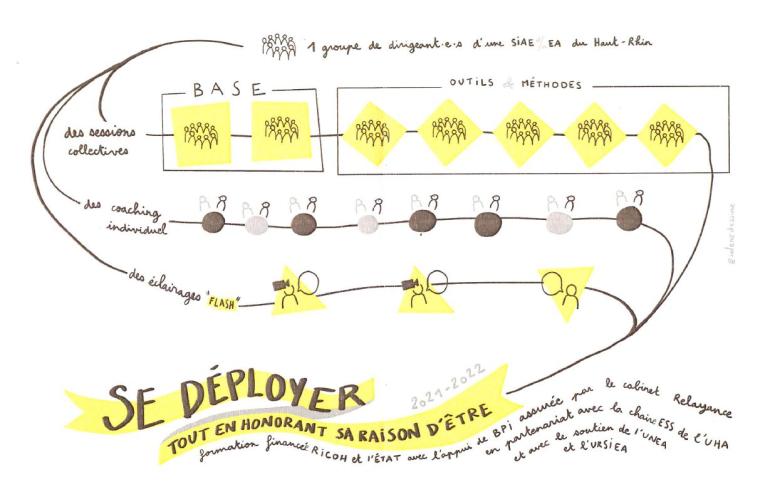 1 groupe de dirigeant·e·s d'une SIAE EA du Haut-Rhin
BASE
OUTILS & MÉTHODES
des sessions
collectives
des coaching
individuel
des éclairages "FLASH"
2021-2022
SE DÉPLOYER
TOUT EN HONORANT SA RAISON D'ÊTRE
formation financée RICOH et l'ÉTAT avec l'appui de BPi assurée par le cabinet Relayance
en partenariat avec la chaire ESS de l'UHA
et avec le soutien de l'UNEA
et l'URSIEA